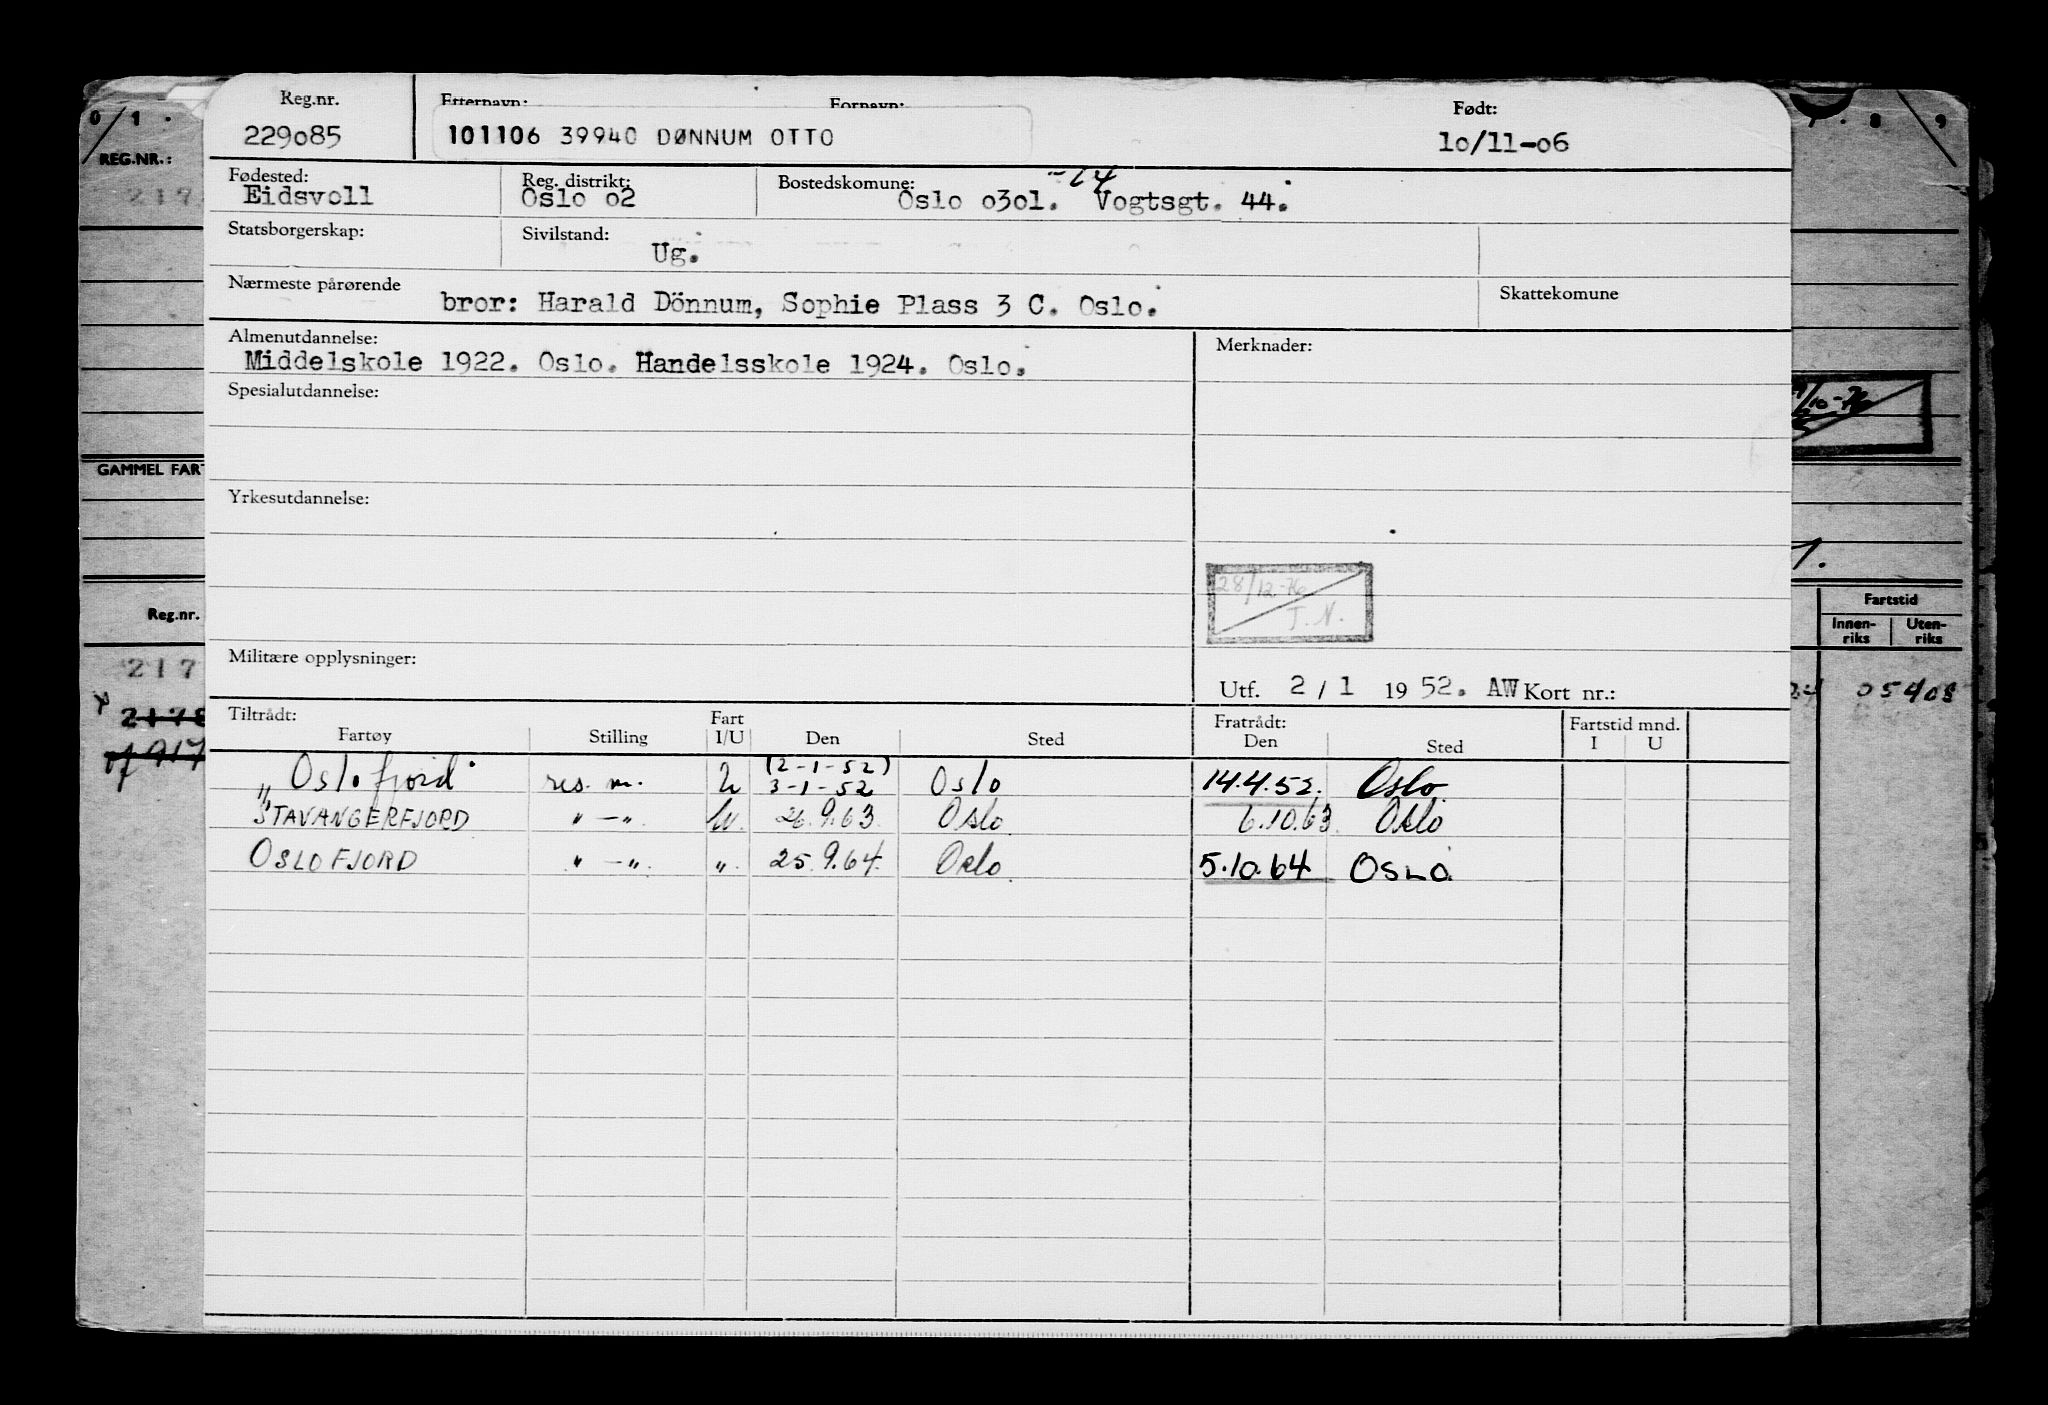 Reg.nr. Etternavn: Fornavn: Født:
229085 101106 39940 DØNNUM OTTO 10/11-06
Fødested: Reg. distrikt: Bostedskomune: -64
Eidsvoll Oslo 02 Oslo 0301. Vogtsgt. 44.
Statsborgerskap: Sivilstand:
Ug.
Nærmeste pårørende Skattekomune
bror: Harald Dönnum, Sophie Plass 3 C. Oslo.
Almenutdannelse: Merknader:
Middelskole 1922. Oslo. Handelsskole 1924. Oslo.
Spesialutdannelse:
Yrkesutdannelse:
28/12-76
T.N.
Militære opplysninger:
Utf. 2/1 1952. AW Kort nr.:
Tiltrådt: Fart Fratrådt: Fartstid mnd.
Fartøy Stilling I/U Den Sted Den Sted I U
(2-1-52)
"Oslofjord" res. m. U 3-1-52 Oslo 14.4.52. Oslo
STAVANGERFJORD " - " U. 26.9.63 Oslo 6.10.63 Oslo
OSLOFJORD " - " " 25.9.64 Oslo 5.10.64 OSLO
0 1 .
REG.NR.:
217
GAMMEL FART
Reg.nr.
217
2178
8 9
/10-76
1.
Fartstid
Innen-riks Uten-riks
05403